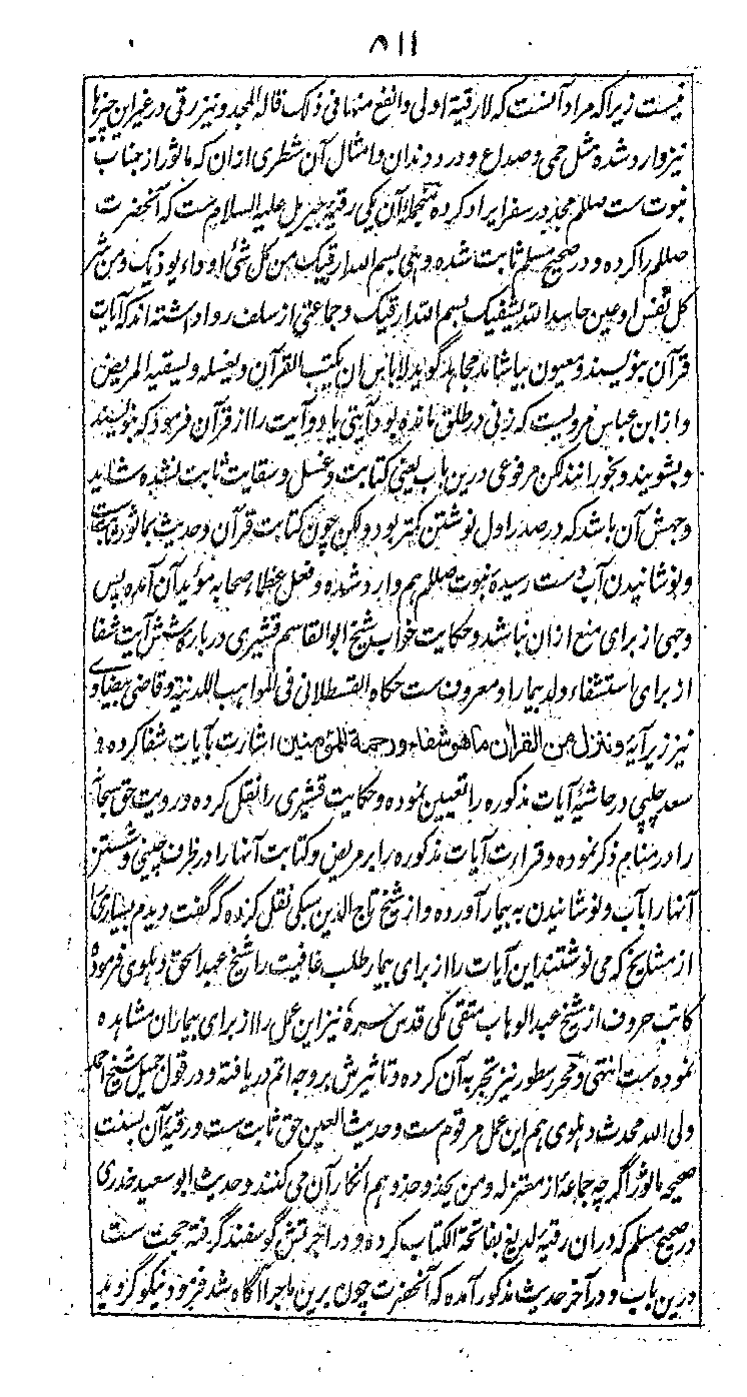 ۵۱۱
نیست زیرا که مراد آنست که لا رقیة اولی و انفع منها فی ذلک قاله المجد و نیز رقی در غیر این چیزها
نیز وارد شده مثل حمی و صداع و درد دندان و امثال آن شطری ازان که ماثور از جناب
نبوت ست صللم مجد در سفر ایراد کرده منجمله آن یکی رقیه جبریل علیه السلام ست که آنحضرت
صللم را کرده و در صحیح مسلم ثابت شده و هی بسم الله ارقیک من کل شئ او داء یوذیک و من شر
کل نفس او عین حاسد الله یشفیک بسم الله ارقیک و جماعتی از سلف روا داشته اند که آیات
قرآن بنویسند و معیون بیاشامد مجاهد گوید لا باس ان یکتب القرآن و یغسله و یسقیه المریض
و از ابن عباس مرویست که زنی در طلق مانده بود آیتی یا دو آیت را از قرآن فرمود که بنویسند
و بشویند و بخورانند لکن مرفوعی درین باب یعنی کتابت و غسل و سقایت ثابت نشده شاید
وجهش آن باشد که در صدر اول نوشتن کمتر بود ولکن چون کتابت قرآن و حدیث بماثور ثابت ست
و نوشانیدن آب دست رسیده نبوت صللم هم وارد شده و فعل عظماء صحابه مؤید آن آمده پس
وجهی از برای منع ازان نباشد و حکایت خواب شیخ ابو القاسم قشیری درباره شش آیت شفا
از برای استشفاء ولد بیمار او معروف ست حکاه القسطلانی فی المواهب اللدنیة و قاضی بیضاوی
نیز زیر آیه و ننزل من القرآن ما هو شفاء و رحمة للمؤمنین اشارت بآیات شفا کرده و
سعد چلپی در حاشیه آیات مذکوره را تعیین نموده و حکایت قشیری را نقل کرده و رویت حق سبحانه
را در منام ذکر نموده و قرارت آیات مذکوره را بر مریض و کتابت آنها را در ظرف چینی و شستن
آنها را بآب و نوشانیدن به بیمار آورده و از شیخ تاج الدین سبکی نقل کرده که گفت دیدم بسیاری را
از مشایخ که می نوشتند این آیات را از برای بیمار طلب عافیت را شیخ عبد الحق دهلوی فرموده
کاتب حروف از شیخ عبد الوهاب متقی مکی قدس سره نیز این عمل را از برای بیماران مشاهده
نموده ست انتهی و محرر سطور نیز تجربه آن کرده و تاثیرش بر وجه اتم دریافته و در قول جمیل شیخ احمد
ولی الله محدث دهلوی هم این عمل مرقوم ست و حدیث العین حق ثابت ست و رقیه آن بسنت
صحیحه ماثور اگرچه جماعهٔ از معتزله و من یحذو حذوهم انکار آن می کنند و حدیث ابو سعید خدری
در صحیح مسلم که دران رقیه لدیغ بفاتحة الکتاب کرده و در اجرتش گوسفند گرفته حجت ست
درین باب و در آخر حدیث مذکور آمده که آنحضرت چون برین ماجرا آگاه شد فرمود نیکو کردید